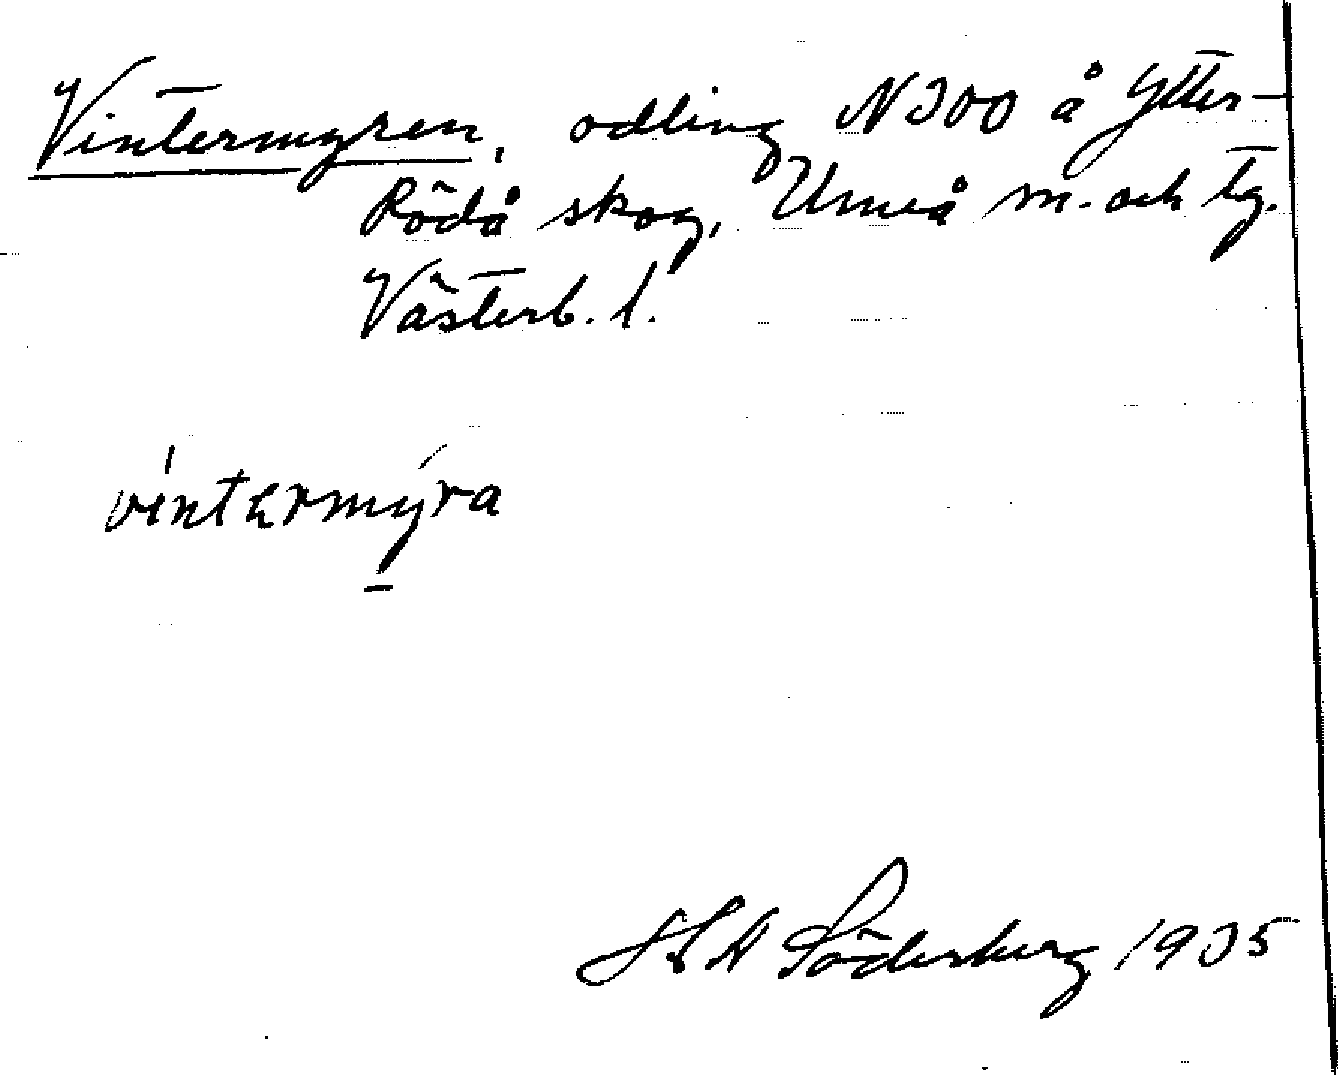 Vintermyren, odling N300 å Ytter-
Rödå skog, Umeå m. och tg.
Västerb. l.
vintermýra
H A Söderberg 1935